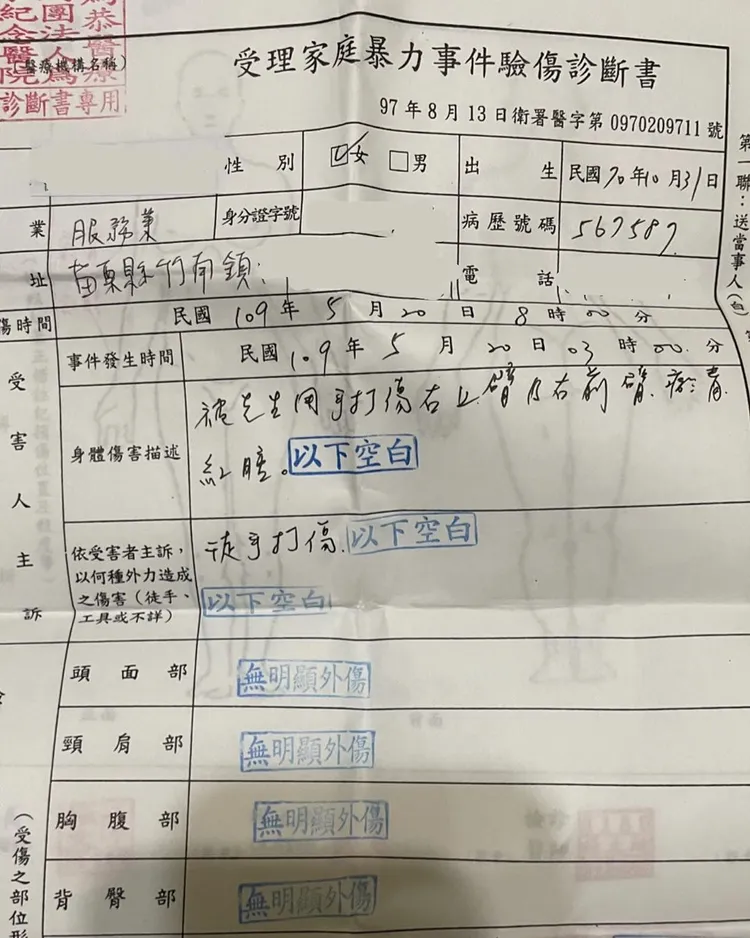 念醫院
診斷書專用
醫療機構名稱)
受理家庭暴力事件驗傷診斷書
97年8月13日衛署醫字第0970209711號
第一聯:送當事人(白)
性別 女 男 出生 民國70年10月31日
業 服務業 身分證字號 病歷號碼 567587
址 苗栗縣竹南鎮 電話
傷時間 民國109年5月20日8時00分
受害人主訴
事件發生時間 民國109年5月20日03時00分
身體傷害描述 被先生用手打傷右上臂及右前臂瘀青
紅腫。以下空白
依受害者主訴,
以何種外力造成
之傷害(徒手、
工具或不詳)
徒手打傷 以下空白
以下空白
頭面部 無明顯外傷
頸肩部 無明顯外傷
胸腹部 無明顯外傷
背臀部 無明顯外傷
(受傷之部位形